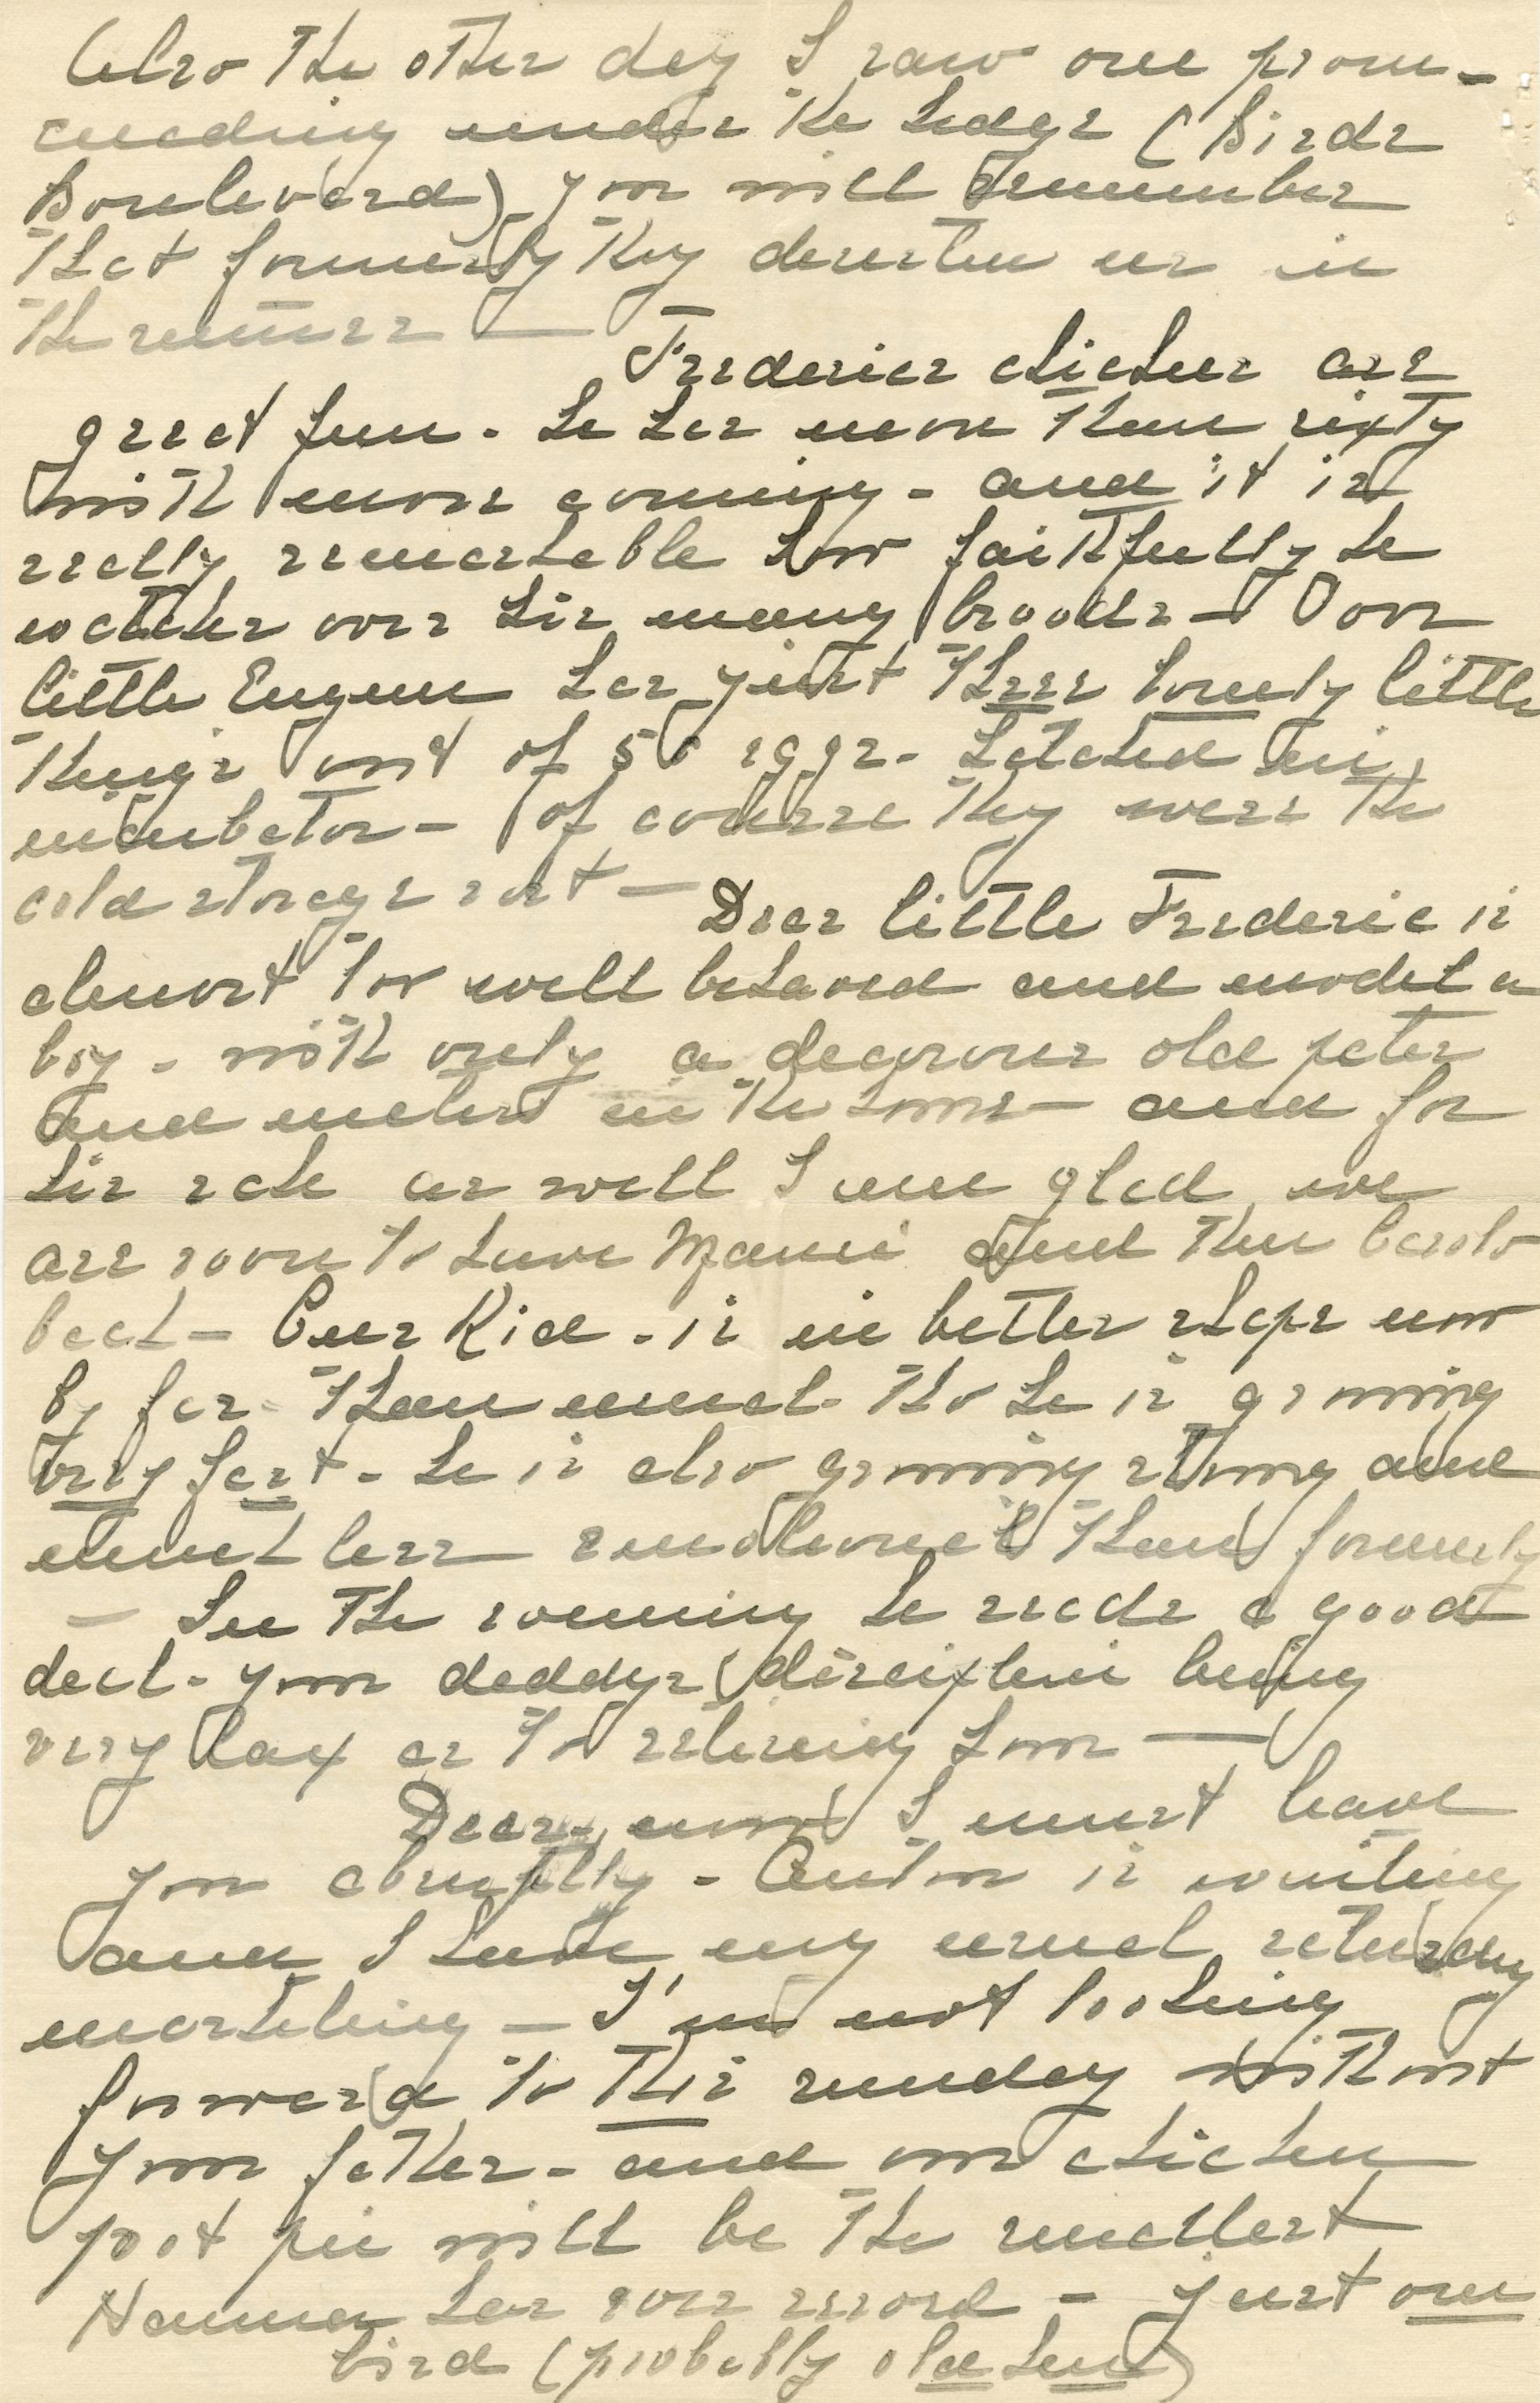 Also the other day I saw one prom-
enading under the hedge (Birds
Boulevard) you will remember
that formerly they deserted us in
the summer —
Frederics chicken are
great fun - he has more than sixty
with more coming - and it is
really remarkable how faithfully he
watches over his many broods - Poor
little Eugene has just three lonely little
things out of 50 eggs - hatched in
incubator - of course they were the
cold storage sort —
Dear little Frederic is
almost too well behaved and model a
boy - with only a decorous old pater
and mater in the home - and for
his sake as well I am glad we
are soon to have Mami and then Carolo
back - Our Kid - is in better shape now
by far than usual - tho he is growing
very fast - he is also growing strong and
much less emotional than formerly
— In the evening he reads a good
deal - your daddys discipline being
very lax as to retiring hour —
Dear - now I must leave
you abruptly - Anton is waiting
and I have my usual saturday
marketing - I'm not looking
forward to this sunday without
your father - and our chicken
pot pie will be the smallest
Hanna has on record - just one
bird (probably old hen)